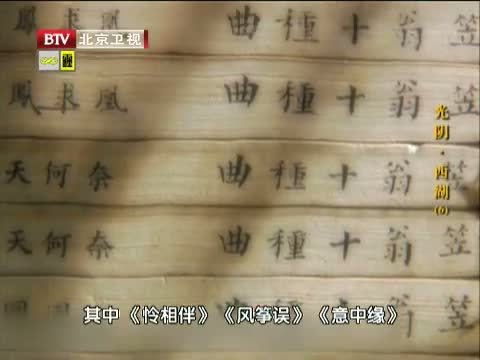 BTV 北京卫视
笠翁十種曲 凰求鳳
笠翁十種曲 凰求鳳
笠翁十種曲 奈何天
笠翁十種曲 奈何天
笠翁十種曲
光阴·西湖(6)
其中《怜相伴》《风筝误》《意中缘》